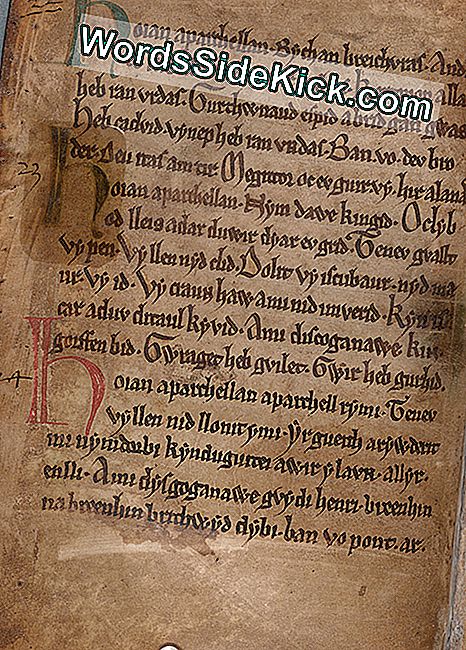 WordsSideKick.com
Hoian aparchellan. Bychan breichvras. And
alla
heb ran vrdas. Gurthwnaud eipid abrid gan gwas
heb cadvid. vynep heb ran vrdas. Ban vo. dev bro
der. Deu itas am tir. Megittor oc ev guir vy. hir aland
23
hoian aparchellan. Nym dawe kingid. O clyb
od lleis adar duwir dyar ev grid. Tenev gvallt
vy pen. Vy llen nyd clid. Dolit vy iscubaur. nyd ma
ur. vy id. Vy craun haw ami nid unverid. Kyn isc
car aduv ditaul kyvid. Ami discoganawe kin
goiffen bid. Gwraget heb gvilet. Gwir heb gurhid.
24
hoian aparchellan aparchell rymi. Tenev
vyllen nid llonit ymi. Yr gueith arywderit
mi nym dorbi kyn duguitei awir y lavr. allyr.
enlli. Ami dysgoganawe gvydi henri. breenhin
na breenhin brithwyd dybi. ban vo pont. ar.